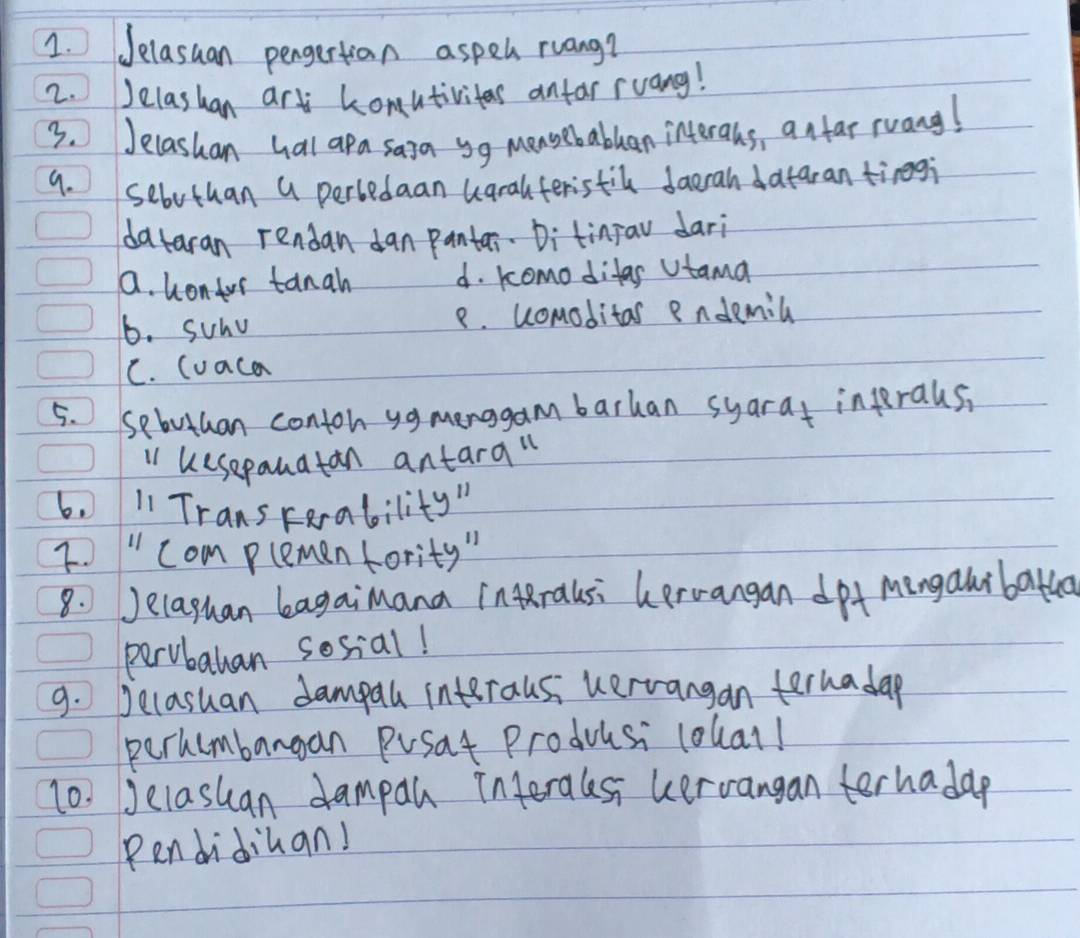 1. Jelaskan pengertian aspek ruang?
2. Jelaskan arti konektivitas antar ruang!
3. Jelaskan hal apa saja yg menyebabkan interaksi antar ruang!
4. Sebutkan 4 perbedaan karakteristik daerah dataran tinggi
dataran rendah dan pantai. Di tinjau dari
a. kontur tanah d. komoditas utama
b. suhu e. komoditas endemik
c. Cuaca
5. sebutkan contoh yg menggambarkan syarat interaksi
"kesepakatan antara"
6. "Transferability"
7. "Complementority"
8. Jelaskan bagaimana interaksi keruangan dpt mengakibatka
perubahan sosial!
9. Jelaskan dampak interaksi keruangan terhadap
perkembangan pusat produksi lokal!
10. Jelaskan dampak interaksi keruangan terhadap
pendidikan!